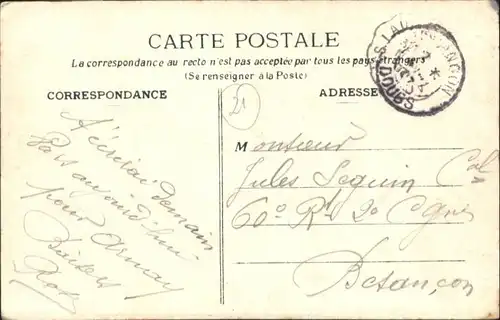 CARTE POSTALE
La correspondance au recto n'est pas acceptée par tous les pays étrangers
(Se renseigner à la Poste)
CORRESPONDANCE
ADRESSE
21
BESANÇON
DOUBS
J'écrirai demain
Pars aujourd'hui
pour Arnay
Baisers
Rose
Monsieur
Jules Seguin Cal
60e Rt 2e Cgnie
Besançon